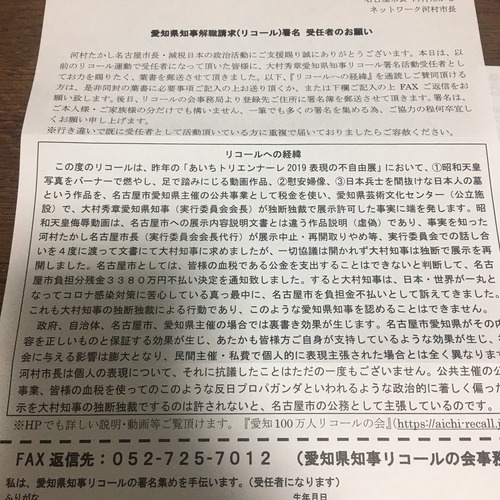 ネットワーク河村市長
愛知県知事解職請求(リコール)署名 受任者のお願い
河村たかし名古屋市長・減税日本の政治活動にご支援賜り誠にありがとうございます。本日は、以
前のリコール運動で受任者になって頂いた皆様に、大村秀章愛知県知事リコール署名活動受任者とし
てお力を賜りたく、葉書を郵送させて頂きました。以下、『リコールへの経緯』を通読しご賛同頂ける
方は、是非同封の葉書に必要事項ご記入の上お送り頂くか、または下欄ご記入の上 FAX ご返信をお
願い致します。後日、リコールの会事務局より登録先ご住所に署名簿を郵送させて頂きます。署名は、
ご本人様・ご家族様の分だけでも構いません、一筆でも多くの署名を集める為、ご協力の程何卒宜し
くお願い申し上げます。
※行き違いで既に受任者として活動頂いている方に重複で届いておりましたらご容赦ください。
リコールへの経緯
この度のリコールは、昨年の「あいちトリエンナーレ2019表現の不自由展」において、①昭和天皇
写真をバーナーで燃やし、足で踏みにじる動画作品、②慰安婦像、③日本兵士を間抜けな日本人の墓
という作品を、名古屋市愛知県主催の公共事業として税金を使い、愛知県芸術文化センター(公立施
設)で、大村秀章愛知県知事(実行委員会会長)が独断独裁で展示許可した事実に端を発します。昭
和天皇侮辱動画は、名古屋市への展示内容説明文書とは違う作品説明(虚偽)であり、事実を知った
河村たかし市長(実行委員会会長代行)が展示中止・再開取りやめ等、実行委員会での話し合
いを4度に渡って文書にて大村知事に求めましたが、一切協議は開かれず大村知事は独断で展示を再
開しました。名古屋市としては、皆様の血税である公金を支出することはできないと判断して、名古屋
市負担分残金3380万円不払い決定を通知致しました。すると大村知事は、日本・世界が一丸と
なってコロナ感染対策に苦心している真っ最中に、名古屋市を負担金不払いとして訴えてきました。
これも大村知事の独断独裁による行動であり、このような愛知県知事を認めることはできません。
政府、自治体、名古屋市、愛知県主催の場合では裏書き効果が生じます。名古屋市愛知県がその内
容を正しいものと保証する効果が生じ、あたかも皆様方ご自身が支持しているような効果が生じ、社
会に与える影響は膨大となり、民間主催・私費で個人的に表現主張された場合とは全く異なります
河村市長は個人の表現について、それに抗議したことはただの一度もございません。公共主催の公
事業、皆様の血税を使ってのこのような反日プロパガンダといわれるような政治的に著しく偏った
示を大村知事の独断独裁でするのは許されないと、名古屋市の公務として主張しているのです。
※HPでも詳しい説明・動画等ご覧頂けます。『愛知100万人リコールの会』(https://aichi-recall.j
FAX 返信先:052-725-7012 (愛知県知事リコールの会事務
私は、愛知県知事リコールの署名集めを手伝います。(受任者になります)
ふりがな 生年月日